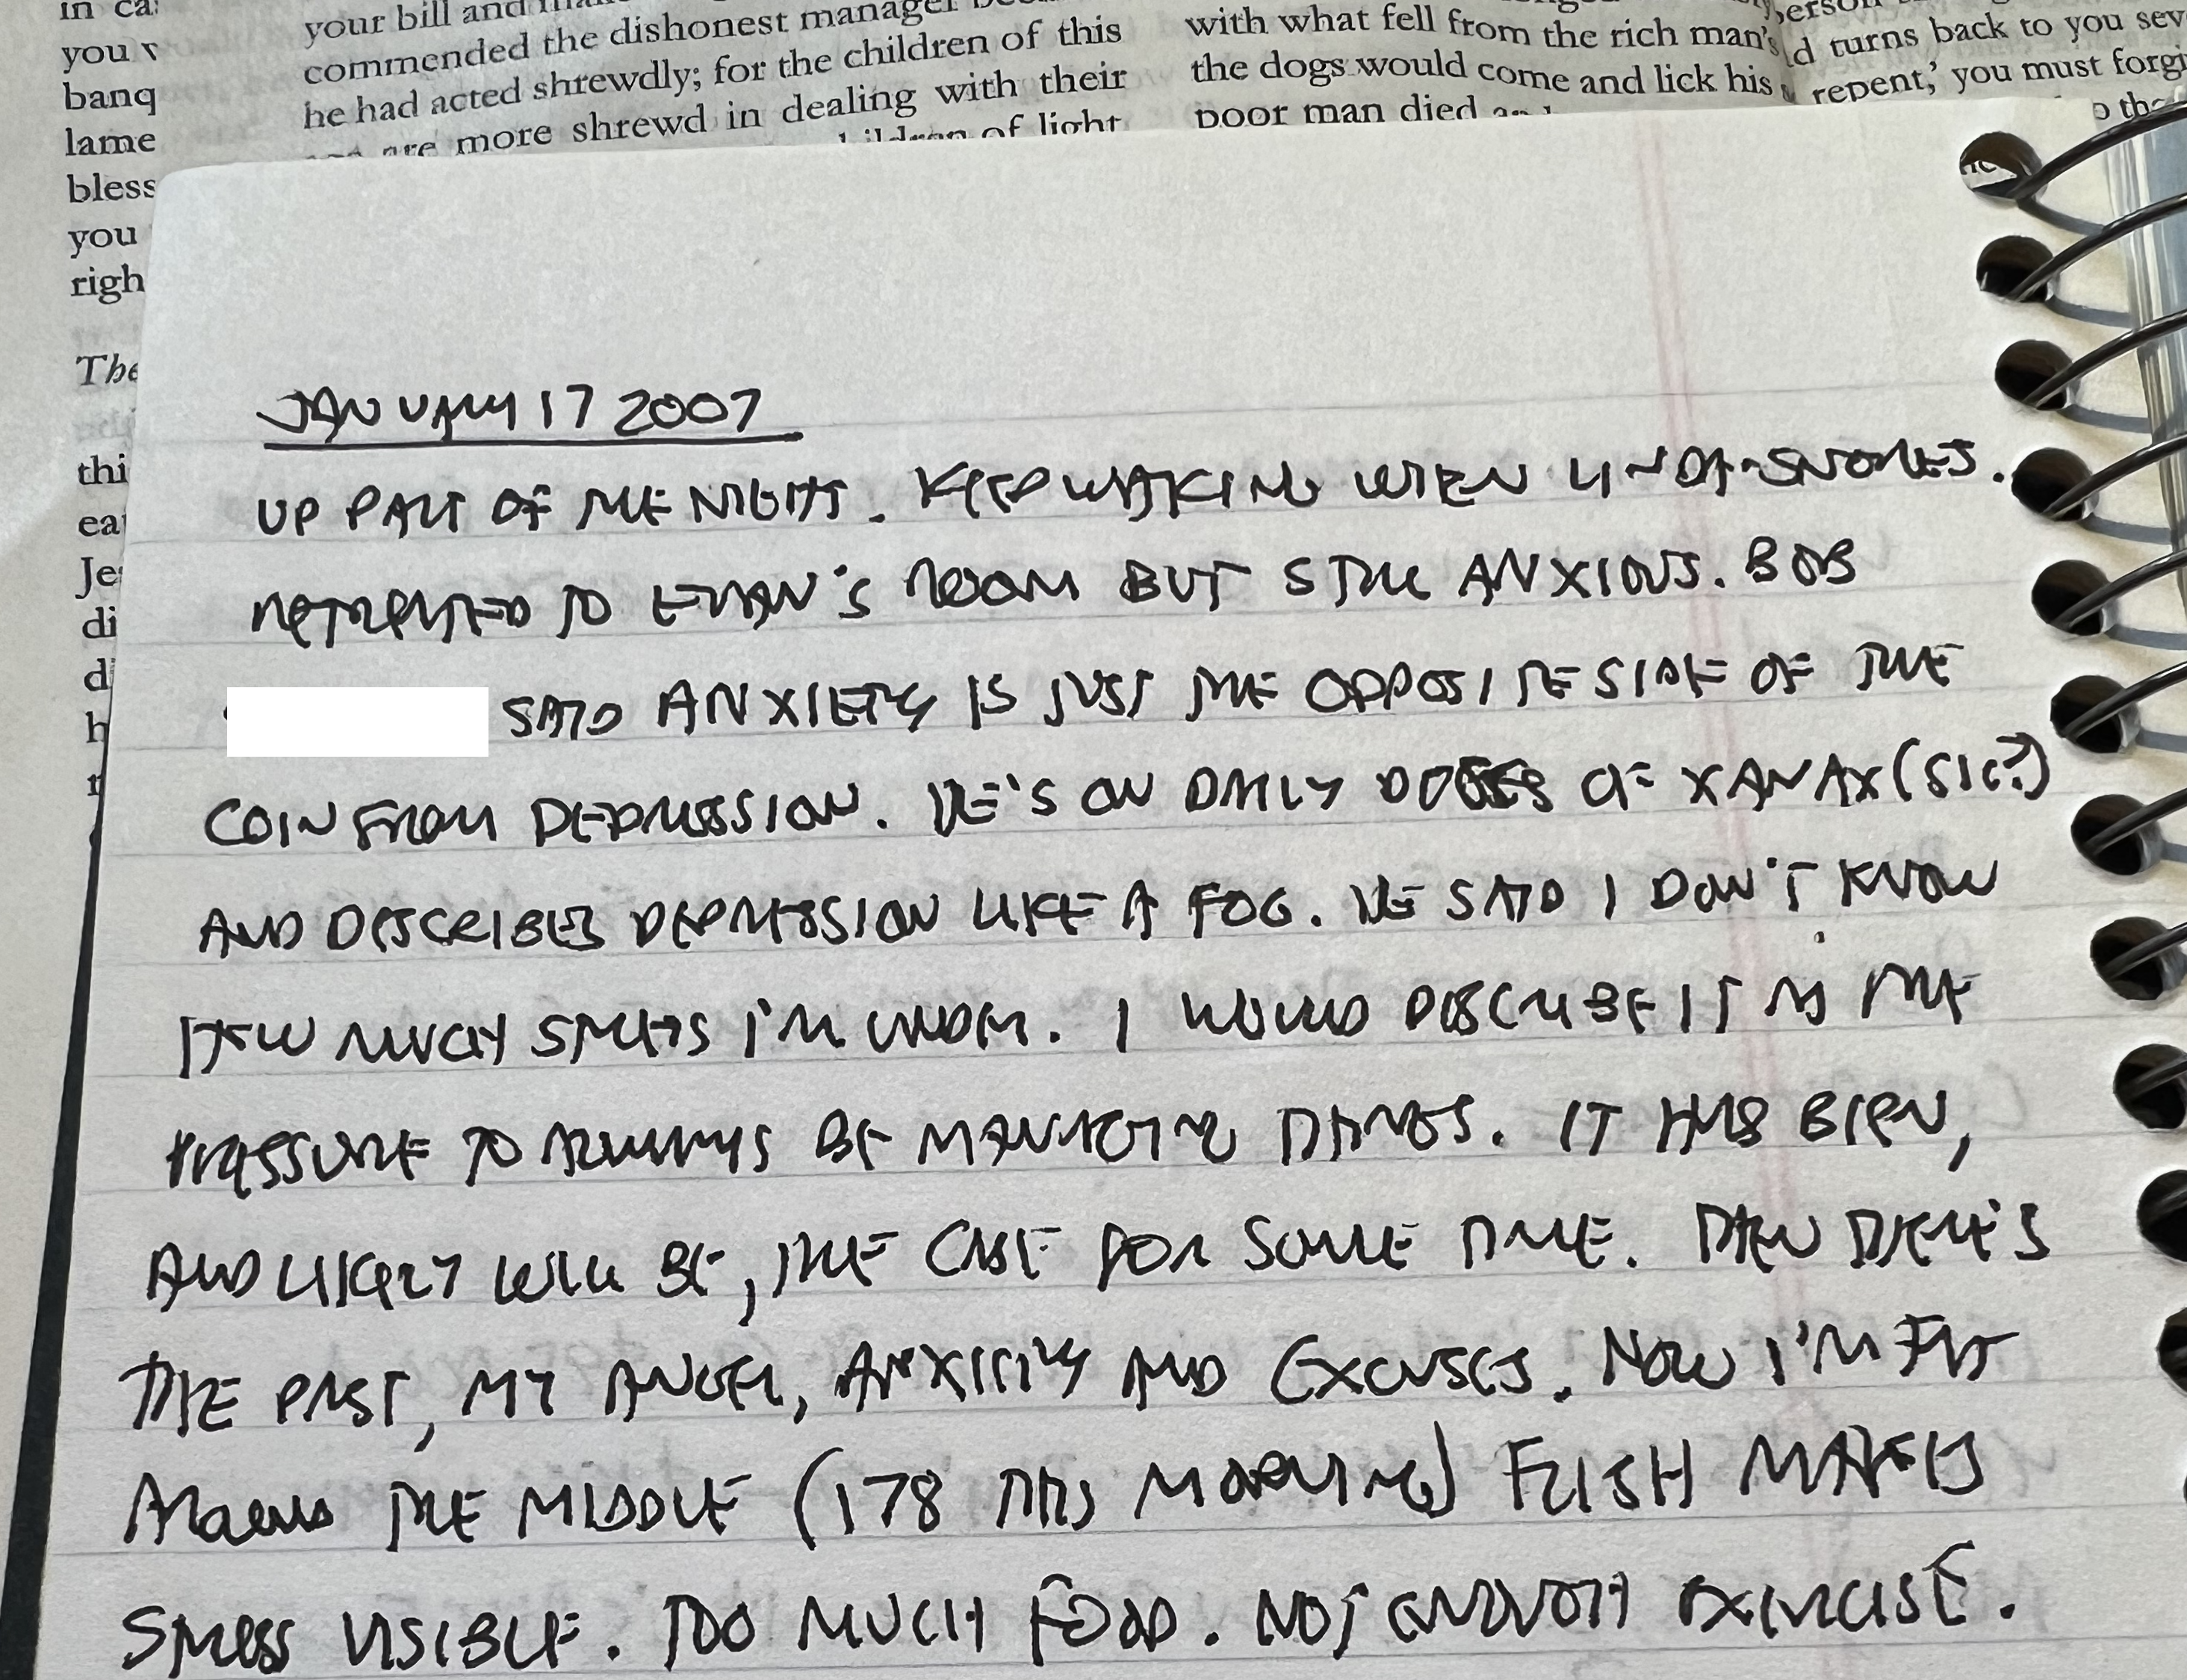 in ca
you
banq
lame
bless
you
righ
The
thi
ea
Je
di
d
h
your bill and
commended the dishonest manager
he had acted shrewdly; for the children of this
are more shrewd in dealing with their
children of light
with what fell from the rich man's
the dogs would come and lick his
poor man died
turns back to you sev
repent,' you must forgi
JANUARY 17 2007
UP PART OF THE NIGHT. KEEP WAKING WHEN LINDA SNORES.
RETREATED TO EVAN'S ROOM BUT STILL ANXIOUS. BOB
SAID ANXIETY IS JUST THE OPPOSITE SIDE OF THE
COIN FROM DEPRESSION. HE'S ON DAILY DOSES OF XANAX (SIC?)
AND DESCRIBES DEPRESSION LIKE A FOG. HE SAID I DON'T KNOW
HOW MUCH STRESS I'M UNDER. I WOULD DESCRIBE IT AS THE
PRESSURE TO ALWAYS BE MANAGING THINGS. IT HAS BEEN,
AND LIKELY WILL BE, THE CASE FOR SOME TIME. THEN THERE'S
THE PAST, MY ANGER, ANXIETY AND EXCUSES. NOW I'M FAT
AROUND THE MIDDLE (178 THIS MORNING) FLESH MAKES
STRESS VISIBLE. TOO MUCH FOOD. NOT ENOUGH EXERCISE.